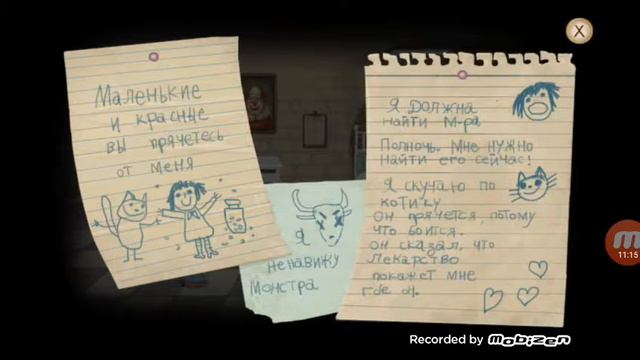 Маленькие
и красные
вы прячетесь
от меня
Я
ненавижу
Монстра
Я должна
найти М-ра
Полночь. Мне нужно
найти его сейчас!
Я скучаю по
котику
Он прячется, потому
что боится.
Он сказал, что
лекарство
покажет мне
где он.
X
11:15
Recorded by mobizen